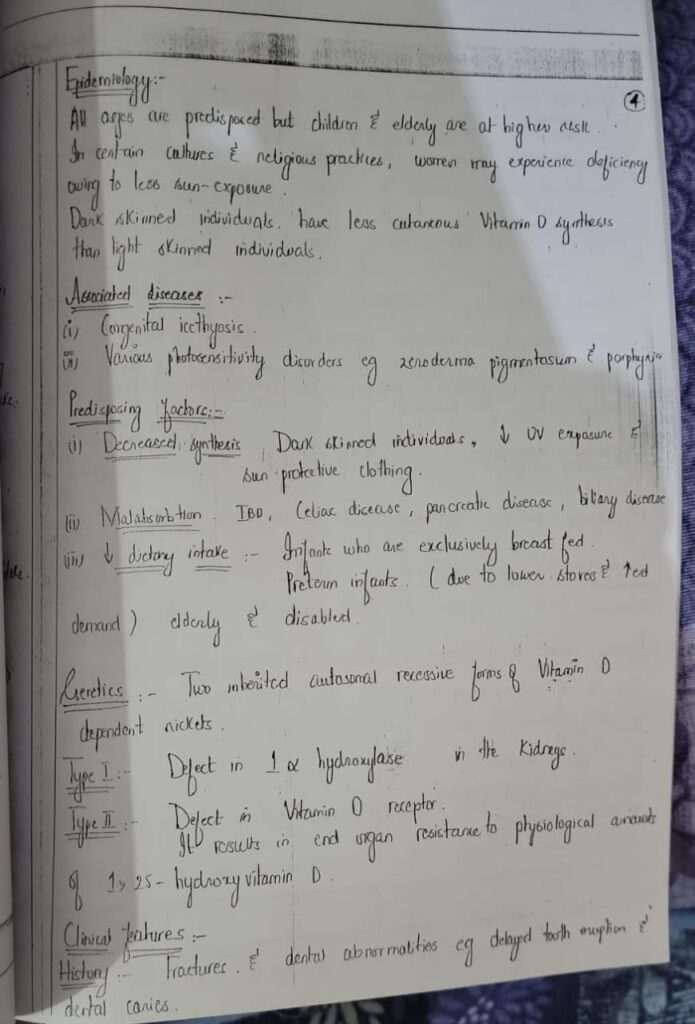 Epidemiology:-
④
All ages are predisposed but children & elderly are at higher risk.
In certain cultures & religious practices, women may experience deficiency
owing to less sun-exposure.
Dark skinned individuals have less cutaneous Vitamin D synthesis
than light skinned individuals.
Associated diseases :-
(i) Congenital icthyosis.
(ii) Various photosensitivity disorders eg xeroderma pigmentosum & porphyria
Predisposing factors:-
(i) Decreased synthesis Dark skinned individuals, ↓ UV exposure &
sun protective clothing.
(ii) Malabsorbtion IBD, Celiac disease, pancreatic disease, biliary disease
(iii) ↓ dietary intake :- Infants who are exclusively breast fed.
Preterm infants. (due to lower stores & ↑ed
demand) elderly & disabled.
Genetics :- Two inherited autosomal recessive forms of Vitamin D
dependent rickets.
Type I :- Defect in 1 α hydroxylase in the Kidneys.
Type II :- Defect in Vitamin D receptor.
It results in end organ resistance to physiological amounts
of 1,25-hydroxy vitamin D.
Clinical features :-
History :- Fractures. & dental abnormalities eg delayed tooth eruption &
dental caries.